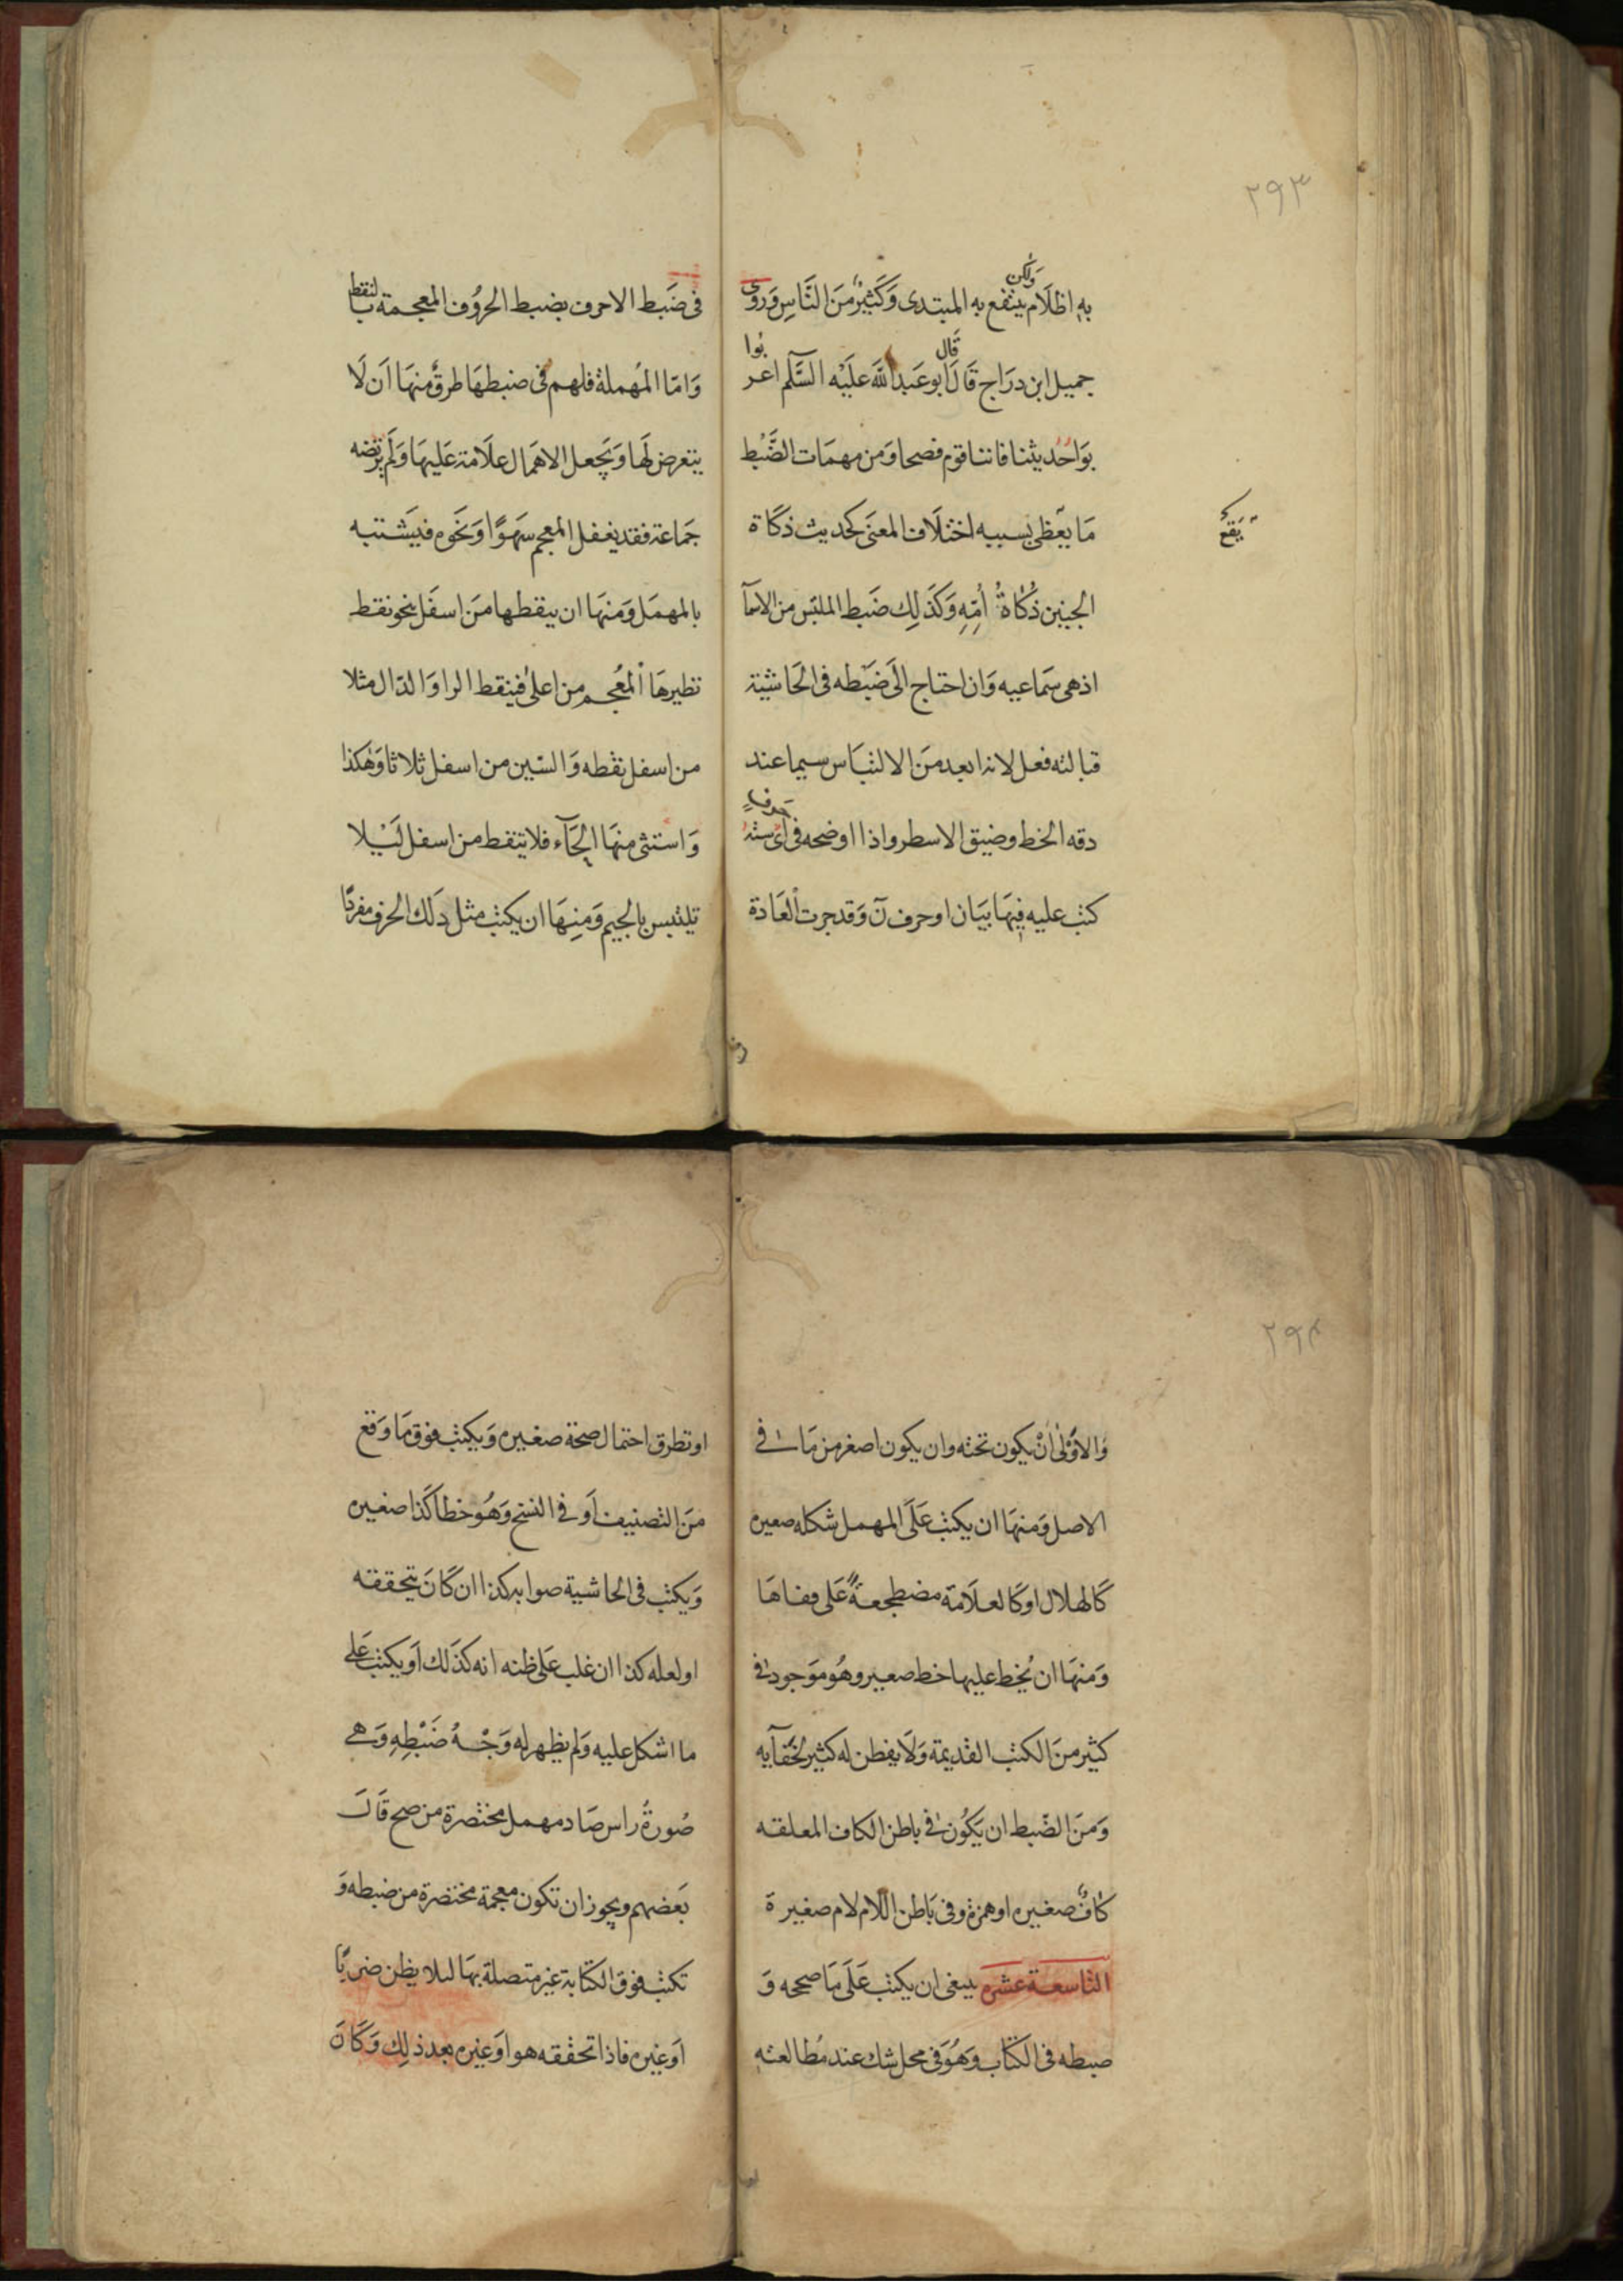 ٢٩٣
ولكن
به اظلام ينتفع به المبتدى وَكَثيرٌ منَ النَّاسِ وَروى
قال بوا
جميل ابن درَاج قَالَ ابو عَبد اللَّه علَيْه السَّلَم اعر
بوَا حُديثنا فاننا قوم فصحا وَمن مهمَات الضَّبْط
مَا يقَع بسببه اختلَاف المعنَى كحديث ذكَاة
يَقَعُ
الجنين ذكَاةُ اُمِّهِ وَكَذَلِك ضَبط الملتبَس من الاسمآ
اذ هى سَماعيه وَان احتاج الَى ضَبْطه فى الحَاشية
قبالته فعل لانه ابعد منَ الالتبَاس سيما عند
دقه الخط وضيق الاسطر واذا اوضحه فى
كتب عليه فيهَا بيَان او حرف نَ وَقد جرت العَادة
فى ضَبط الاحرف بضبط الحرُوف المعجمة بالنقط
وَامّا المُهملة فلهم فى ضبطهَا طرقٌ منهَا اَن لَا
يتعرض لَها وَيَجعل الاهمَال علَامة عَليهَا وَلَم يرتضه
جَماعة فقد يغفل المعجم سَهوًا وَنحَوه فيَشتبه
بالمهمَل وَمنهَا ان ينقطها منَ اسفَل بنحو نقط
نظيرهَا المُعجم من اعلىٰ فينقط الرا وَالدّال مثلا
من اسفل نقطه وَالسّين من اسفل ثلاثا وَهٰكذا
وَاستثنى منهَا الحَآء فلا تنقط من اسفل لَيْلا
تلتبس بالجيم وَمنِهَا ان يكتب مثل ذلَك الحرف مفردًا
٢٩٤
وَالاَوْلىٰ اَنْ يكون تحته وان يكون اصغر من مَا فى
الاصل وَمنهَا ان يكتب عَلَى المهمل شكله صغيره
كَالهلال او كَالعلَامة مضطجعةً عَلى قفاهَا
وَمنهَا ان يُخط عليها خط صغير وهُو مَوجود فى
كثير منَ الكتب القَديمة وَلَا يفطن له كثير لخَفآيه
وَمنَ الضّبط ان يَكُون فى باطن الكاف المعلقه
كافٌ صغيره او همزة وفى بَاطن اللام لام صغيرة
التاسعَة عشرَه ينبغى ان يكتب عَلَى مَا صححه وَ
ضبطه فى الكتَاب وَهُوَ فى محل شك عند مُطالعته
او تطرق احتمال صحة صغيره وَيكتب فوق مَا وَقع
منَ التصنيف اَو فى النسخ وَهُو خطا كَذا صغيره
وَيكتب فى الحاشية صوابه كذا ان كَانَ يتحققه
او لعله كذا ان غلب عَلى ظنه انه كذَلك اَو يكتب عَلَى
ما اشكل عليه وَلم يظهر له وَجْهُ ضَبْطِهِ وَهى
صُورةُ راس صَاد مهمل مختصَرة من صح قَالَ
بَعضهم ويجوز ان تكون معجمة مختصَرة من ضبطه وَ
تكتب فوق الكتَابة غير متصلة بهَا لئلا يظن ضربًا
اَو غيره فاذا تحققه هو اوَ غيره بعد ذلِك وَكَانَ